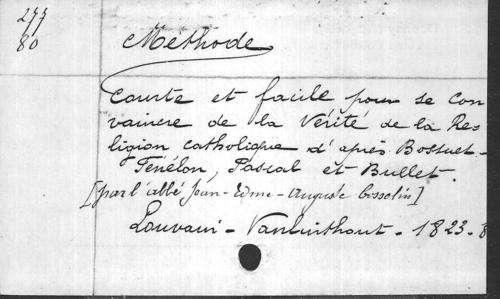 277
80
Méthode
courte et facile pour se con
vaincre de la Vérité de la Re-
ligion catholique d'après Bossuet-
Fénélon, Pascal et Bullet.
[par l'abbé Jean-Edme-Auguste Gosselin]
Louvain - Vanlinthout - 1823 - 8